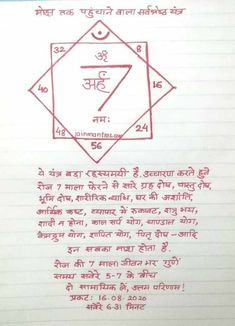 मोक्ष तक पहुंचाने वाला सर्वश्रेष्ठ यंत्र
32
8
ॐ
अर्हं
7
40
16
नमः
48
jainmantras.com
24
56
ये यंत्र बड़ा रहस्यमयी है. उच्चारण करते हुवे
रोज 7 माला फेरने से सारे ग्रह दोष, वास्तु दोष,
भूमि दोष, शारीरिक व्याधि, घर की अशांति,
आर्थिक कष्ट, व्यापार में रुकावट, शत्रु भय,
शादी न होना, काल सर्प योग, चाण्डाल योग,
केमद्रुम योग, शापित योग, पितृ दोष -आदि
इन सबका नाश होता है.
रोज की 7 माला जीवन भर गुणें
समय सवेरे 5-7 के बीच
दो सामायिक में, उत्तम परिणाम!
प्रकट: 16-08-2020
सवेरे 6-31 मिनट